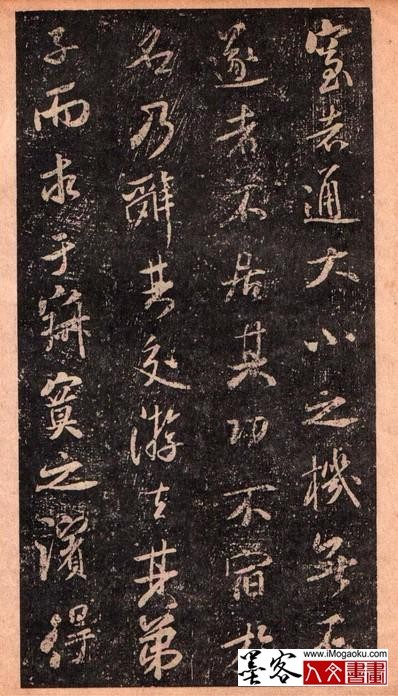 窒者通大小之機無不
遂者不居其功不宿於
名乃辭其交游去其弟
子而求于寂寞之濱得
www.iMogaoku.com
墨客 人文書畫